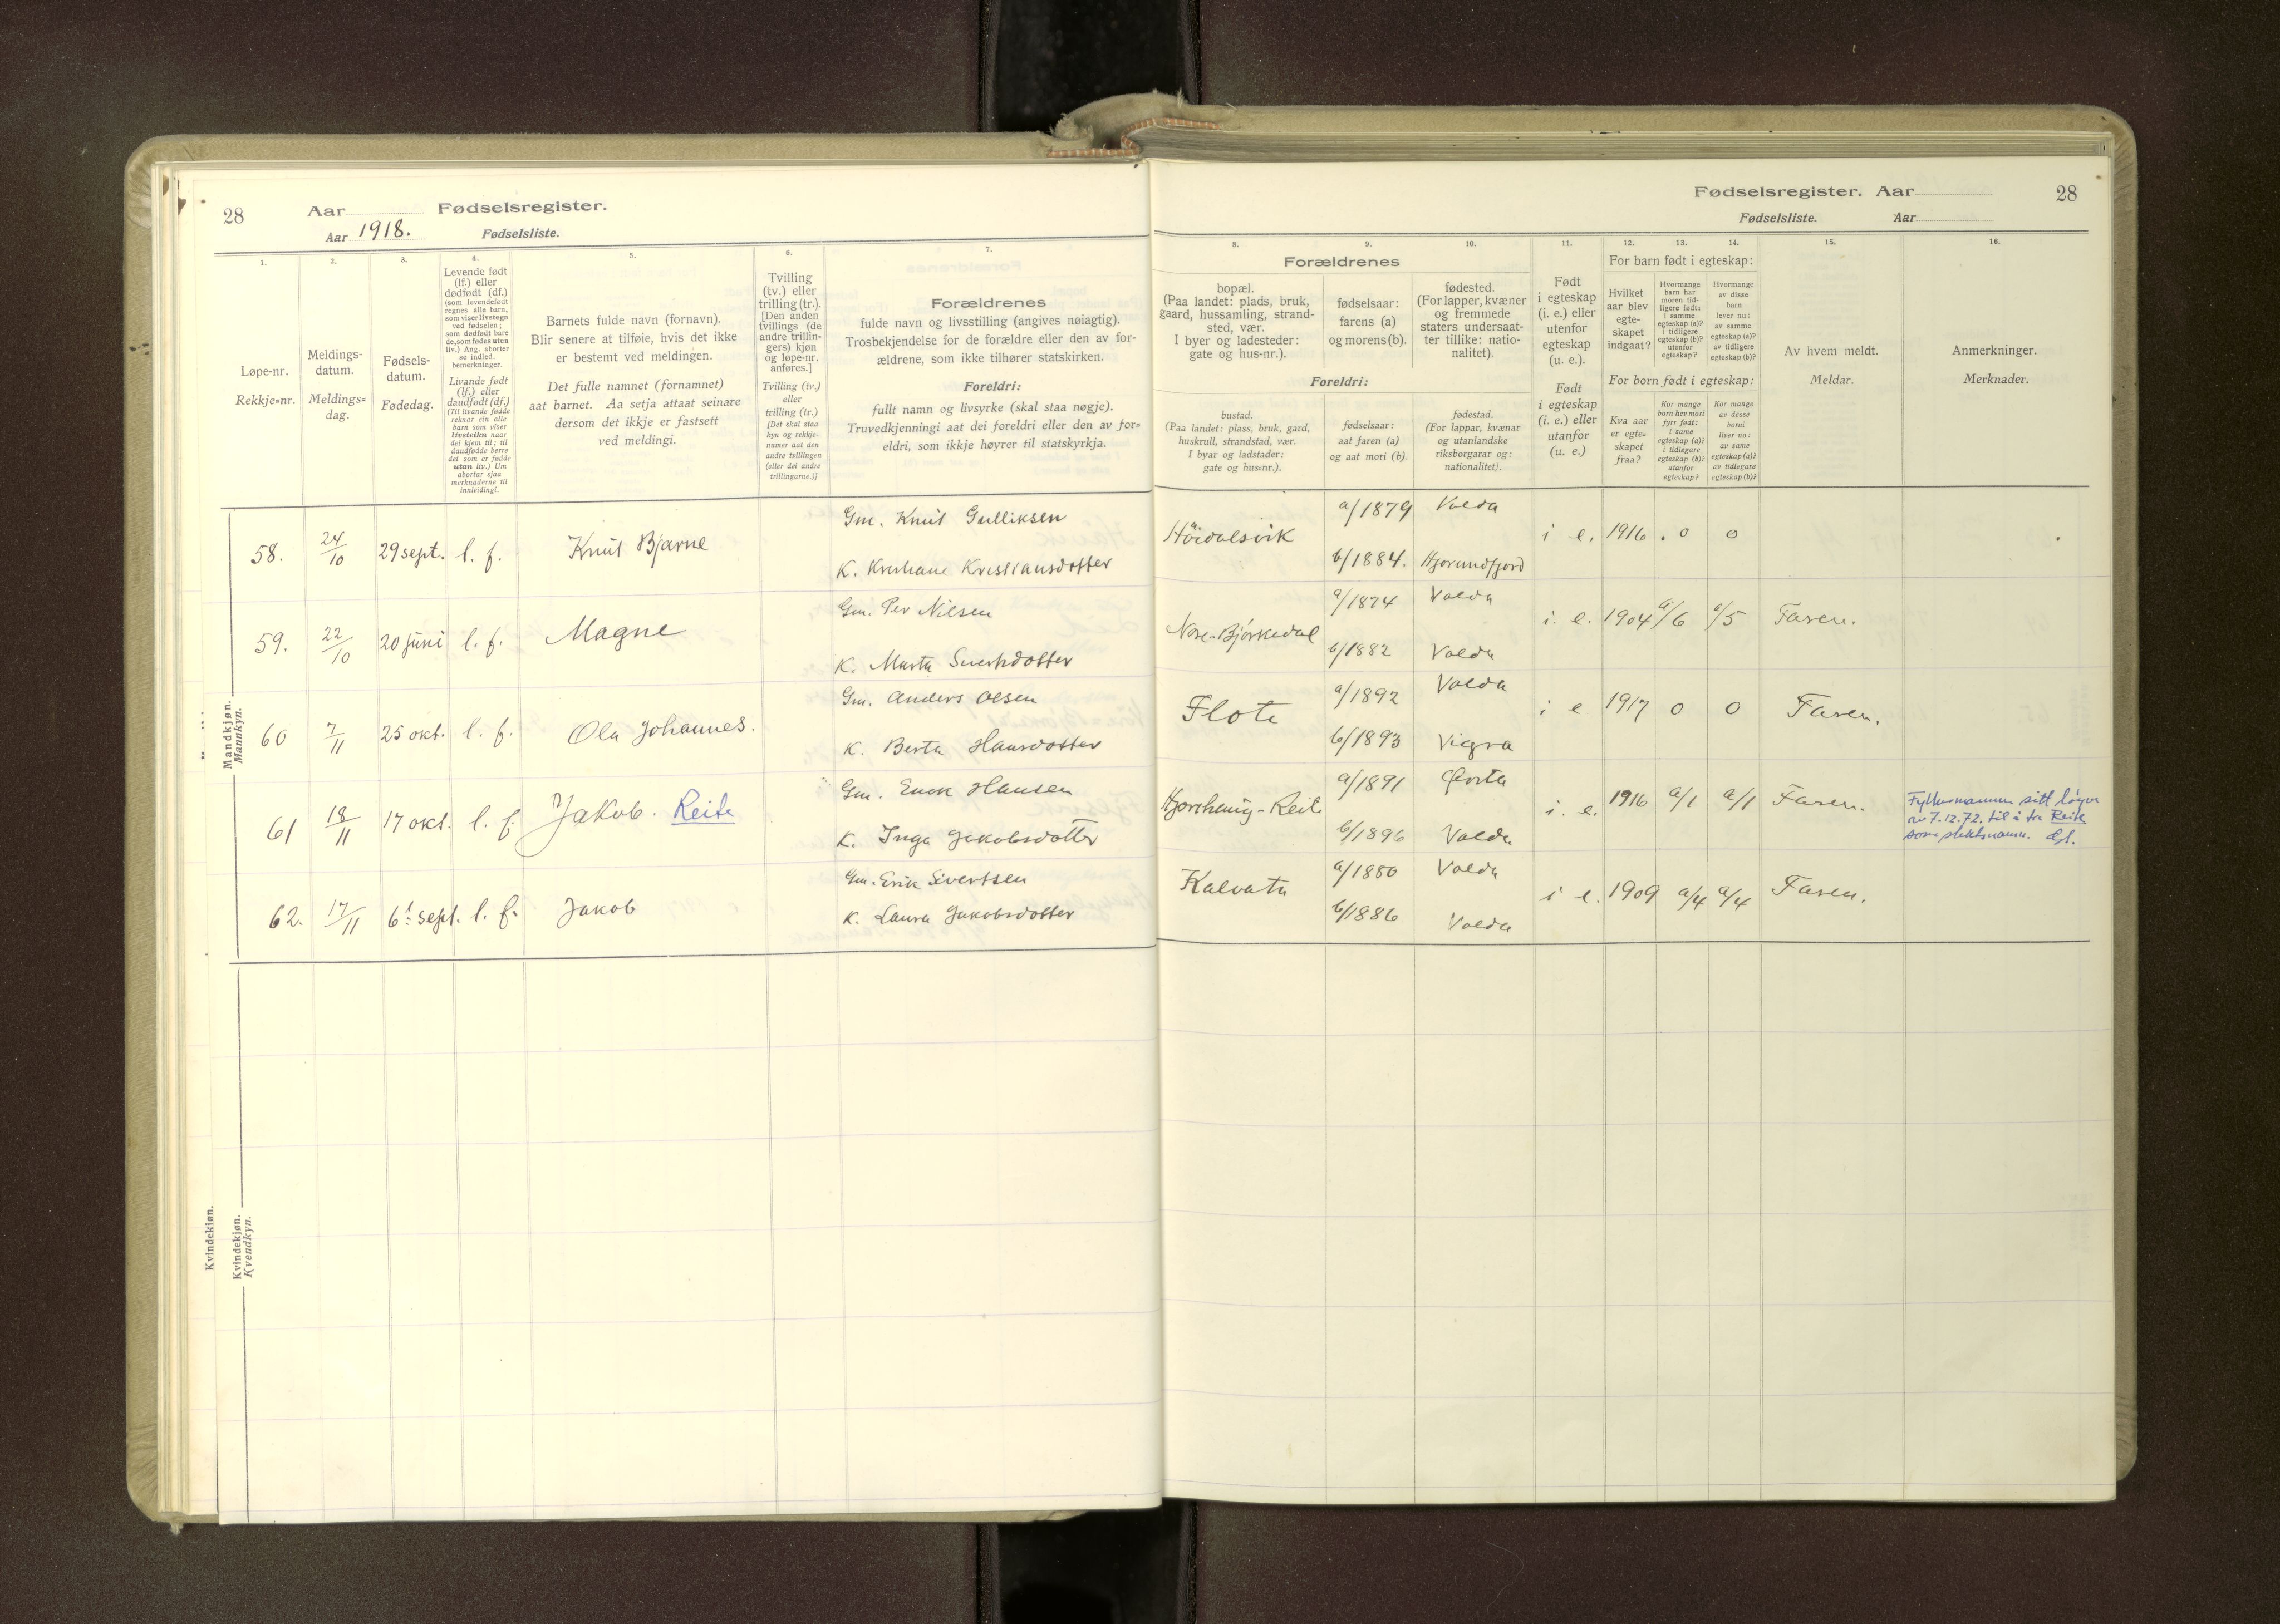 28
Aar Fødselsregister.
Aar 1918. Fødselsliste.
1.
2.
3.
4.
5.
6.
7.
Løpe-nr.
Rekkje=nr.
Meldings-
datum.
Meldings=
dag.
Fødsels-
datum.
Fødedag.
Levende født
(lf.) eller
dødfødt (df.)
(som levendefødt
regnes alle barn,
som viser livstegn
ved fødselen;
som dødfødt bare
de, som fødes uten
liv.) Ang. aborter
se indled.
bemerkninger.
Livande født
(lf.) eller
daudfødt (df.)
(Til livande fødde
reknar ein alle
barn som viser
livsteikn naar
dei kjem til; til
daudfødde berre
dei som er fødde
utan liv.) Um
abortar sjaa
merknaderne til
innleidingi.
Barnets fulde navn (fornavn).
Blir senere at tilføie, hvis det ikke
er bestemt ved meldingen.
Det fulle namnet (fornamnet)
aat barnet. Aa setja attaat seinare
dersom det ikkje er fastsett
ved meldingi.
Tvilling
(tv.) eller
trilling (tr.).
[Den anden
tvillings (de
andre trillin-
gers) kjøn
og løpe-nr.
anføres.]
Tvilling (tv.)
eller
trilling (tr.)
[Det skal staa
kyn og rekkje-
numer aat den
andre tvillingen
(eller dei andre
trillingarne.)]
Forældrenes
fulde navn og livsstilling (angives nøiagtig).
Trosbekjendelse for de forældre eller den av for-
ældrene, som ikke tilhører statskirken.
Foreldri:
fullt namn og livsyrke (skal staa nøgje).
Truvedkjenningi aat dei foreldri eller den av for=
eldri, som ikkje høyrer til statskyrkja.
Mandkjøn.
Mannkyn.
58. 24/10 29 sept. l. f. Knut Bjarne Gm. Knut Gulliksen
K. Kristiansdotter
59. 22/10 20 juni l. f. Magne Gm. Per Nilsen
K. Marta
60 7/11 25 okt. l. f. Ola Johannes. Gm. Anders Olsen
K. Berta Hansdotter
61 18/11 17 okt. l. f. Jakob. Reite Gm. Hansen
K. Inga Jakobsdotter
62. 17/11 6 sept. l. f. Jakob Gm. Erik Sivertsen
K. Laura Jakobsdotter
Kvindekjøn.
Kvindekjøn.
Kvendkyn.
Fødselsregister. Aar 28
Fødselsliste. Aar
8.
9.
10.
11.
12.
13.
14.
15.
16.
Forældrenes
bopæl.
(Paa landet: plads, bruk,
gaard, hussamling, strand-
sted, vær.
I byer og ladesteder:
gate og hus-nr.).
fødselsaar:
farens (a)
og morens (b).
fødested.
(For lapper, kvæner
og fremmede
staters undersaat-
ter tillike: natio-
nalitet).
Foreldri:
bustad.
(Paa landet: plass, bruk, gard,
huskrull, strandstad, vær.
I byar og ladstader:
gate og hus=nr.).
fødselsaar:
aat faren (a)
og aat mori (b).
fødestad.
(For lappar, kvænar
og utanlandske
riksborgarar og:
nationalitet).
Født
i egteskap
(i. e.) eller
utenfor
egteskap
(u. e.).
Født
i egteskap
(i. e.) eller
utanfor
(u. e.)
For barn født i egteskap:
Hvilket
aar blev
egte-
skapet
indgaat?
Hvormange
barn har
moren tid-
ligere født:
i samme
egteskap (a)?
i tidligere
egteskap (b)?
utenfor
egteskap?
Hvormange
av disse
barn
lever nu:
av samme
egteskap (a)?
av tidligere
egteskap (b)?
For born født i egteskap:
Kva aar
er egte=
skapet
fraa?
Kor mange
born hev mori
fyrr født:
i same
egteskap (a)?
i tidlegare
egteskap (b)?
utanfor
egteskap?
Kor mange
av desse
borni
liver no:
av same
egteskap (a)?
av tidlegare
egteskap (b)?
Av hvem meldt.
Meldar.
Anmerkninger.
Merknader.
a/1879 Volda
i e. 1916 . 0 0
b/1884. Hjørundfjord
Nore-Bjørkedal a/1874 Volda
i. e. 1904 a/6 a/5 Faren.
b/1882 Volda
Flote a/1892 Volda
i e 1917 0 0 Faren.
b/1893 Vigra
a/1891 Ørsta
i. e. 1916 a/1 a/1 Faren.
b/1896 Volda
Fylkesmannen sitt løyve
av 7.12.72. til å ta Reite
som slektsnamn.
Kalvatn a/1880 Volda
i e. 1909 a/4 a/4 Faren.
b/1886 Volda